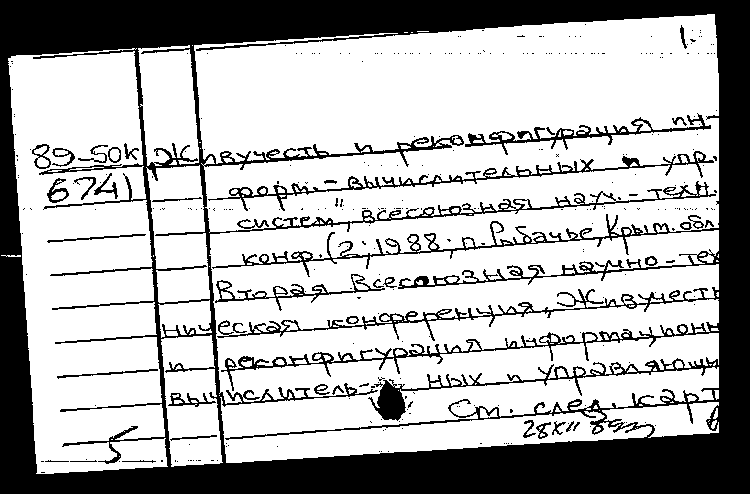 1.
89-50к "Живучесть и реконфигурация ин-
674) форм.-вычислительных и упр.
систем", всесоюзная науч.-техн.
конф. (2; 1988; п. Рыбачье, Крым. обл
Вторая Всесоюзная научно-тех
ническая конференция "Живучесть
и реконфигурация информационн
вычислитель- ных и управляющи
См. след. карт
28 XII 89
5